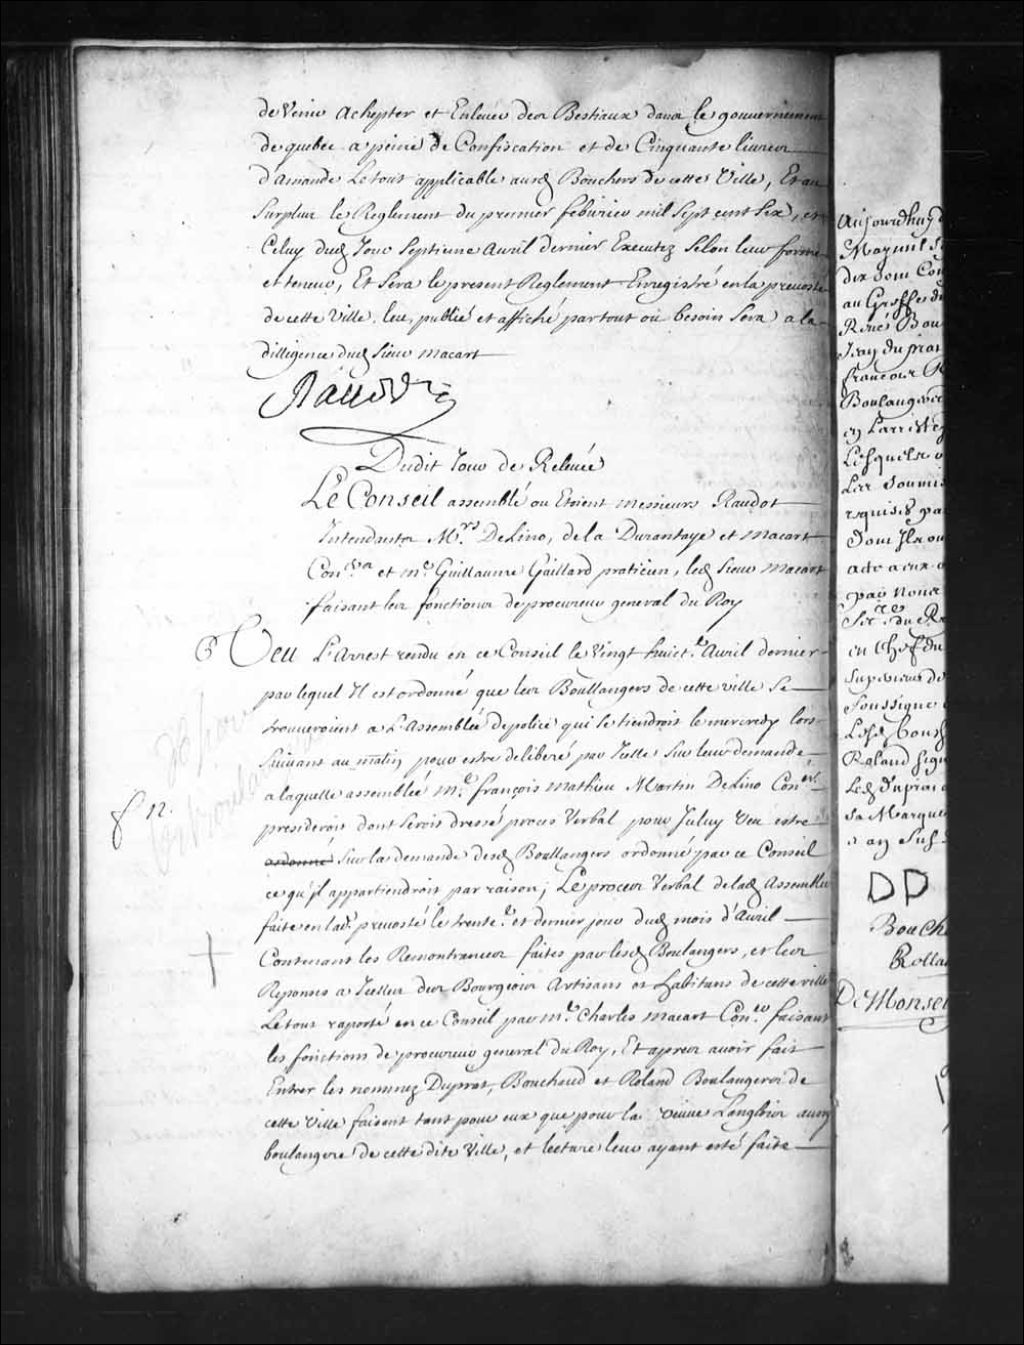 de Venir achepter et Enlever des Bestiaux dans le gouvernement
de quebec a peine de Confiscation et de Cinquante livres
d'amande Le tout applicable ausd Bouchers de cette Ville, Et au
Surplus le Reglement du premier febvrier mil Sept cent Six, et
Celuy dud Jour Septieme Avril dernier Executez Selon leur forme
et teneur, Et Sera le present Reglement Enregistré en la prevosté
de cette Ville, leu, publié et affiché partout où besoin Sera a la
dilligence dud Sieur macart
Raudot
Dudit Jour de Relevée
Le Conseil assemblé ou Etoient messieurs Raudot
Intendants Mrs DeLino, de la Durantaye et macart
Conrs et me Guillaume Gaillard praticien, led Sieur macart
faisant les fonctions de procureur general du Roy
Veu L'Arrest rendu en ce Conseil le Vingt huict.e Avril dernier
par lequel Il est ordonné que les Boullangers de cette ville Se
trouveroient a L'Assemblée de police qui Se tiendroit le mercredy lors
Suivant au matin pour estre deliberé par Icelle Sur leur demande
a laquelle assemblée Me françois mathieu Martin DeLino Coner
presideroit dont Seroit dressé proces Verbal pour Iceluy Veu estre
8 n.
ordonné Sur la demande desd Boullangers ordonné par ce Conseil
ce qu'il appartiendroit par raison; Le procez Verbal de lad Assemblée
faite en lad. prevosté le trente.e et dernier jour dud mois d'Avril
Contenant les Remontrances faites par lesd Boulangers, et les
Reponses a Icelles des Bourgeois Artisans et habitans de cette ville
Le tout raporté en ce Conseil par me Charles macart Coner faisant
les fonctions de procureur general du Roy, Et apres avoir fait
Entrer les nommez Duprat, Bouchaud et Roland Boulangers de
cette Ville faisant tant pour eux que pour la veuve Langlois aussy
boulangere de cette dite Ville, et lecture leur ayant esté faite
Aujourdhuy
May mil
au Greffe
Rene
Jean duprat
françois
Boulangers
Lesquels
Les Soumis
requis
dont Ils
acte a eux
par nous
du
en Chef du
Superieur de
Soussigné
Lesd
Roland Sign
Led duprat
Sa Marque
DD
Bouch
Rolla
De Monsei